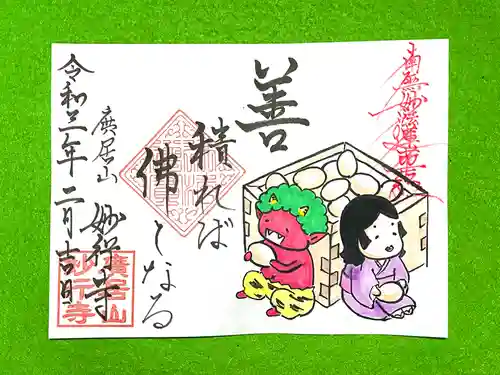 南無妙法蓮華経
善
積れば
佛となる
廣居山
妙行寺
令和三年二月吉日
廣居山
妙行寺